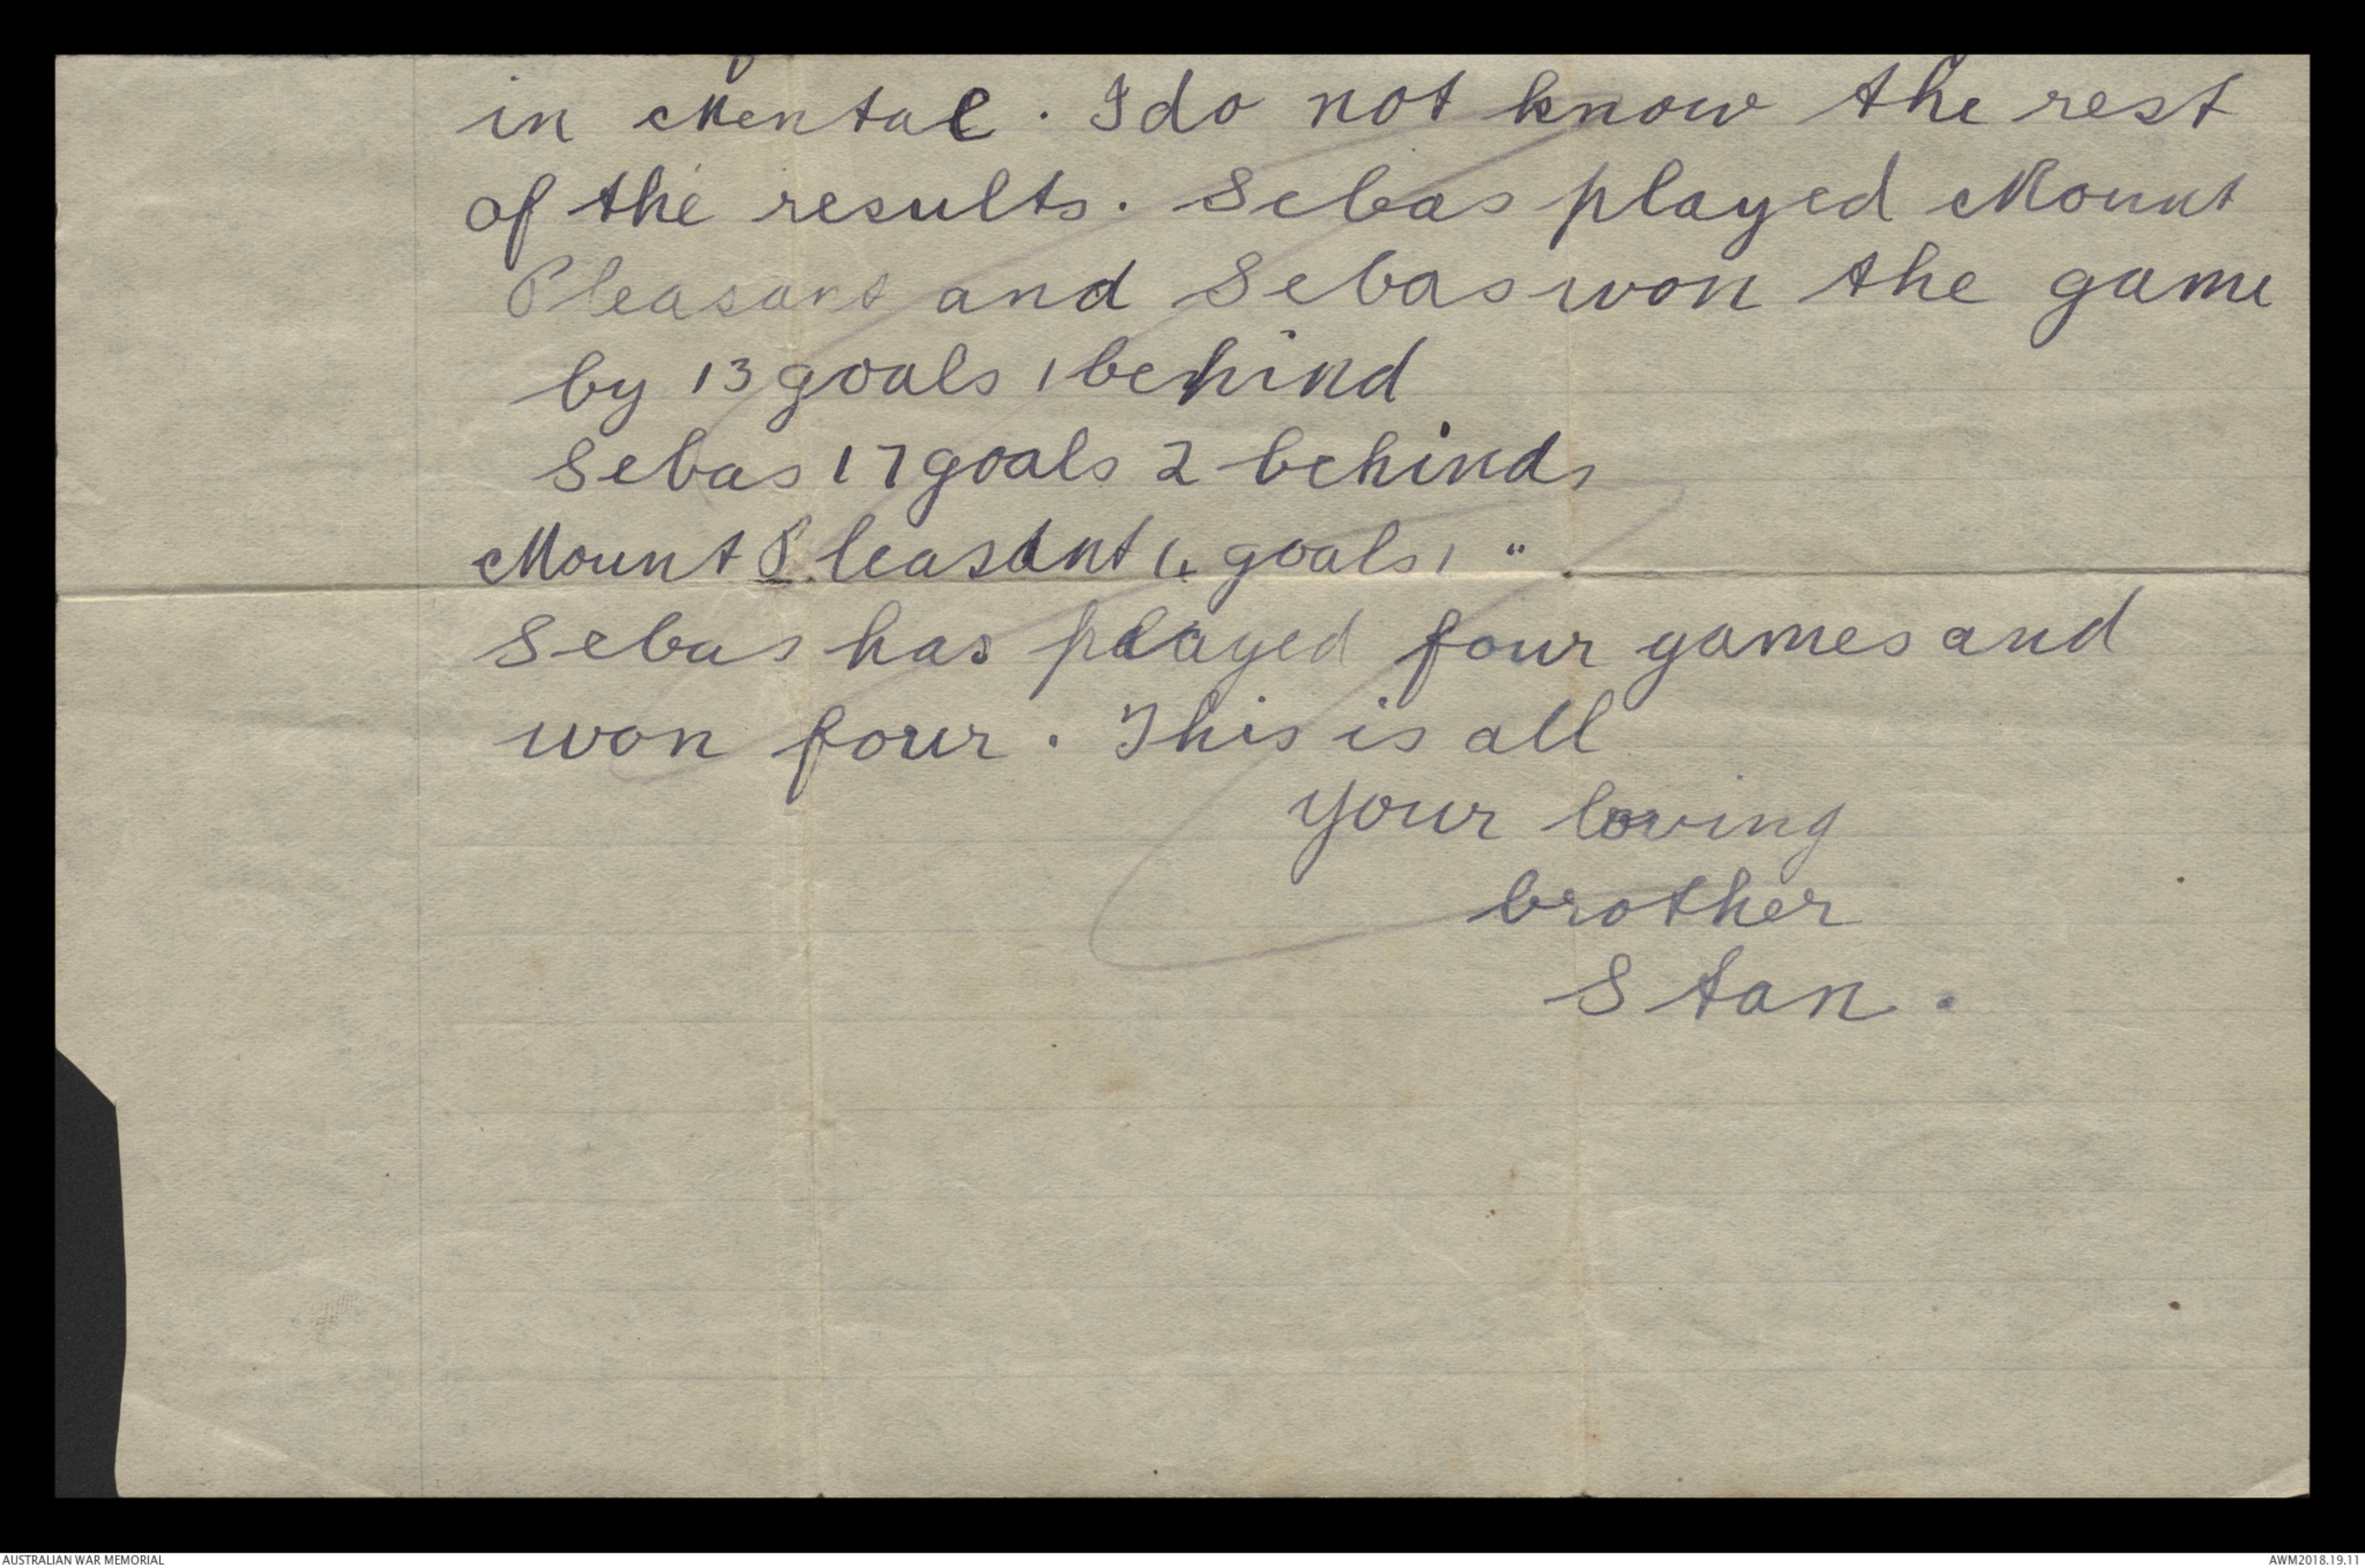 in Mental. I do not know the rest
of the results. Sebas played Mount
Pleasant and Sebas won the game
by 13 goals 1 behind
Sebas 17 goals 2 behinds
Mount Pleasant 4 goals 1 "
Sebas has played four games and
won four. This is all
your loving
brother
Stan.
AUSTRALIAN WAR MEMORIAL
AWM2018.19.11